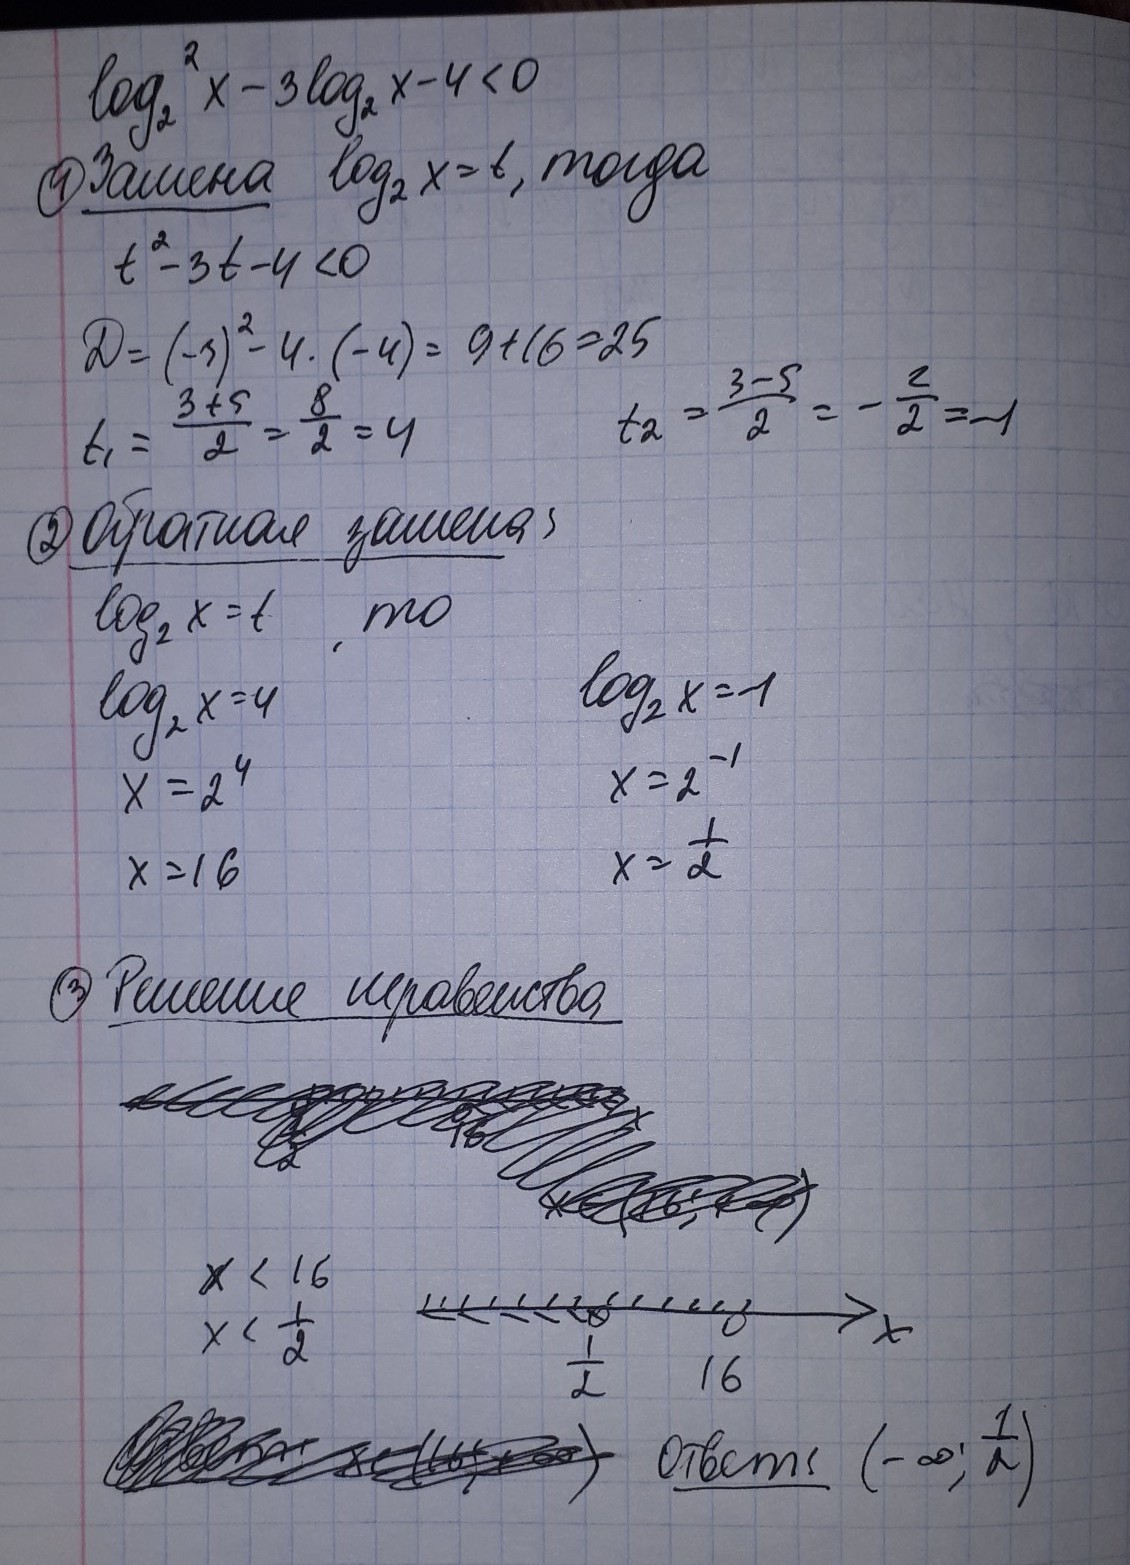 log₂²x − 3log₂x − 4 < 0
① Замена log₂x = t, тогда
t² − 3t − 4 < 0
D = (−3)² − 4 · (−4) = 9 + 16 = 25
t₁ = (3+5)/2 = 8/2 = 4 t₂ = (3−5)/2 = −2/2 = −1
② Обратная замена:
log₂x = t, то
log₂x = 4 log₂x = −1
x = 2⁴ x = 2⁻¹
x = 16 x = 1/2
③ Решение неравенства
x < 16
x < 1/2
x
1/2 16
Ответ: (−∞; 1/2)